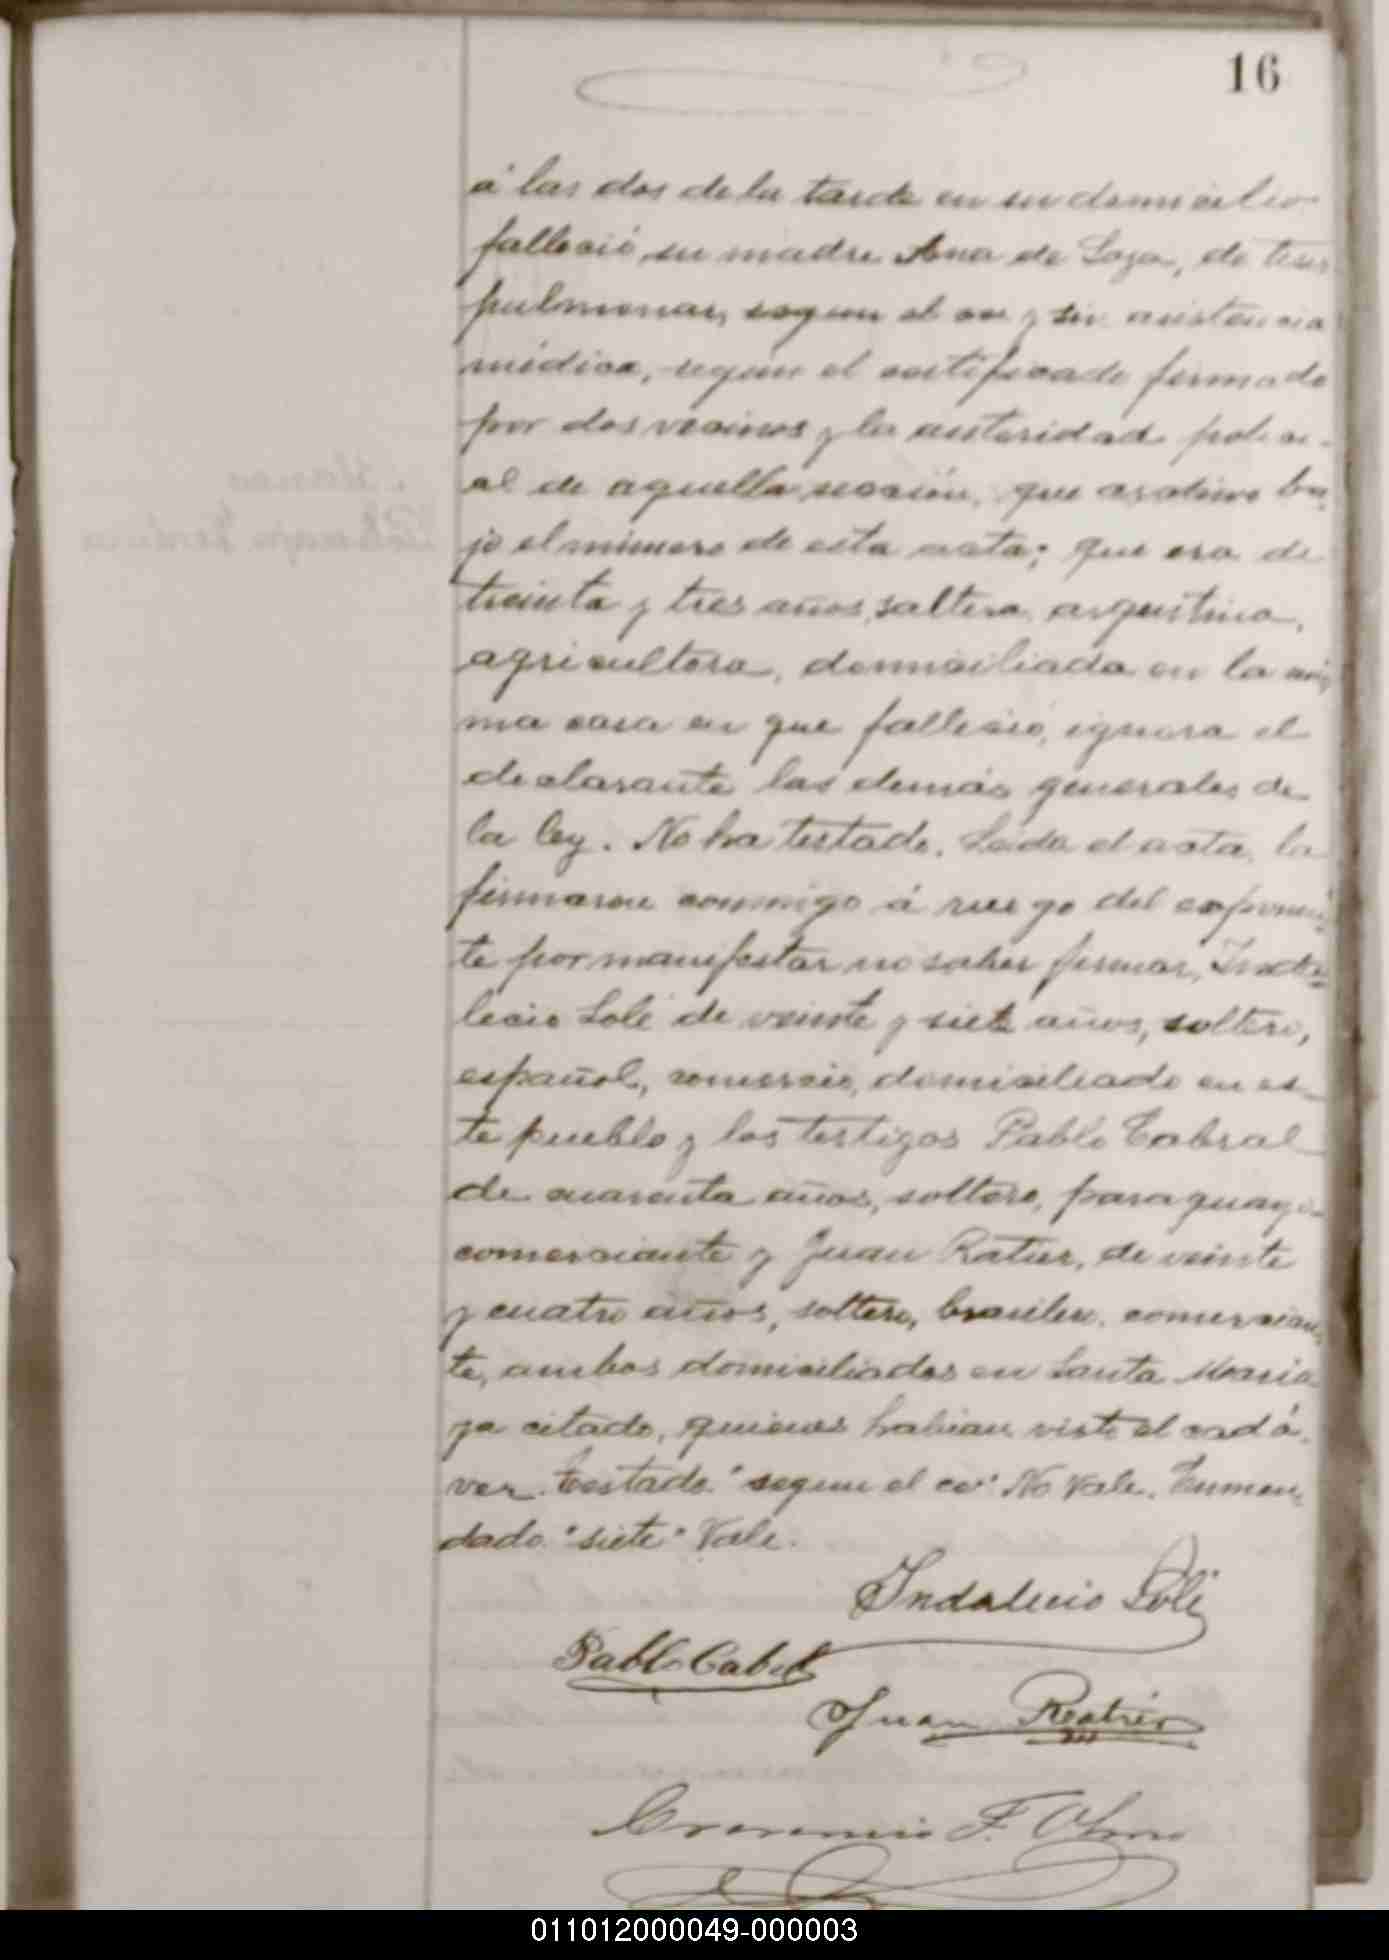 16
á las dos de la tarde en su domicilio
falleció su madre Ana de Loza, de tisis
pulmonar, segun el ce y sin asistencia
médica, segun el certificado firmado
por dos vecinos y la autoridad polici-
al de aquella seccion, que archivo ba-
jo el número de esta acta; que era de
treinta y tres años, saltera, argentina,
agricultora, domiciliada en la mis-
ma casa en que falleció, ignora el
declarante las demás generales de
la ley. No ha testado. Leida el acta, la
firmaron conmigo á ruego del exponen-
te por manifestar no saber firmar, Inda-
lecio Solé de veinte y siete años, soltero,
español, comercio, domiciliado en es-
te pueblo y los testigos Pablo Cabral
de cuarenta años, soltero, paraguayo
comerciante y Juan Ratier, de veinte
y cuatro años, soltero, brasilero, comercian-
te, ambos domiciliados en Santa Maria
ya citado, quienes habian visto el cadá-
ver. Testado "segun el ce" No Vale. Enmen-
dado "siete" Vale.
Indalecio Solé
Pablo Cabral
Juan Ratier
F.
011012000049-000003